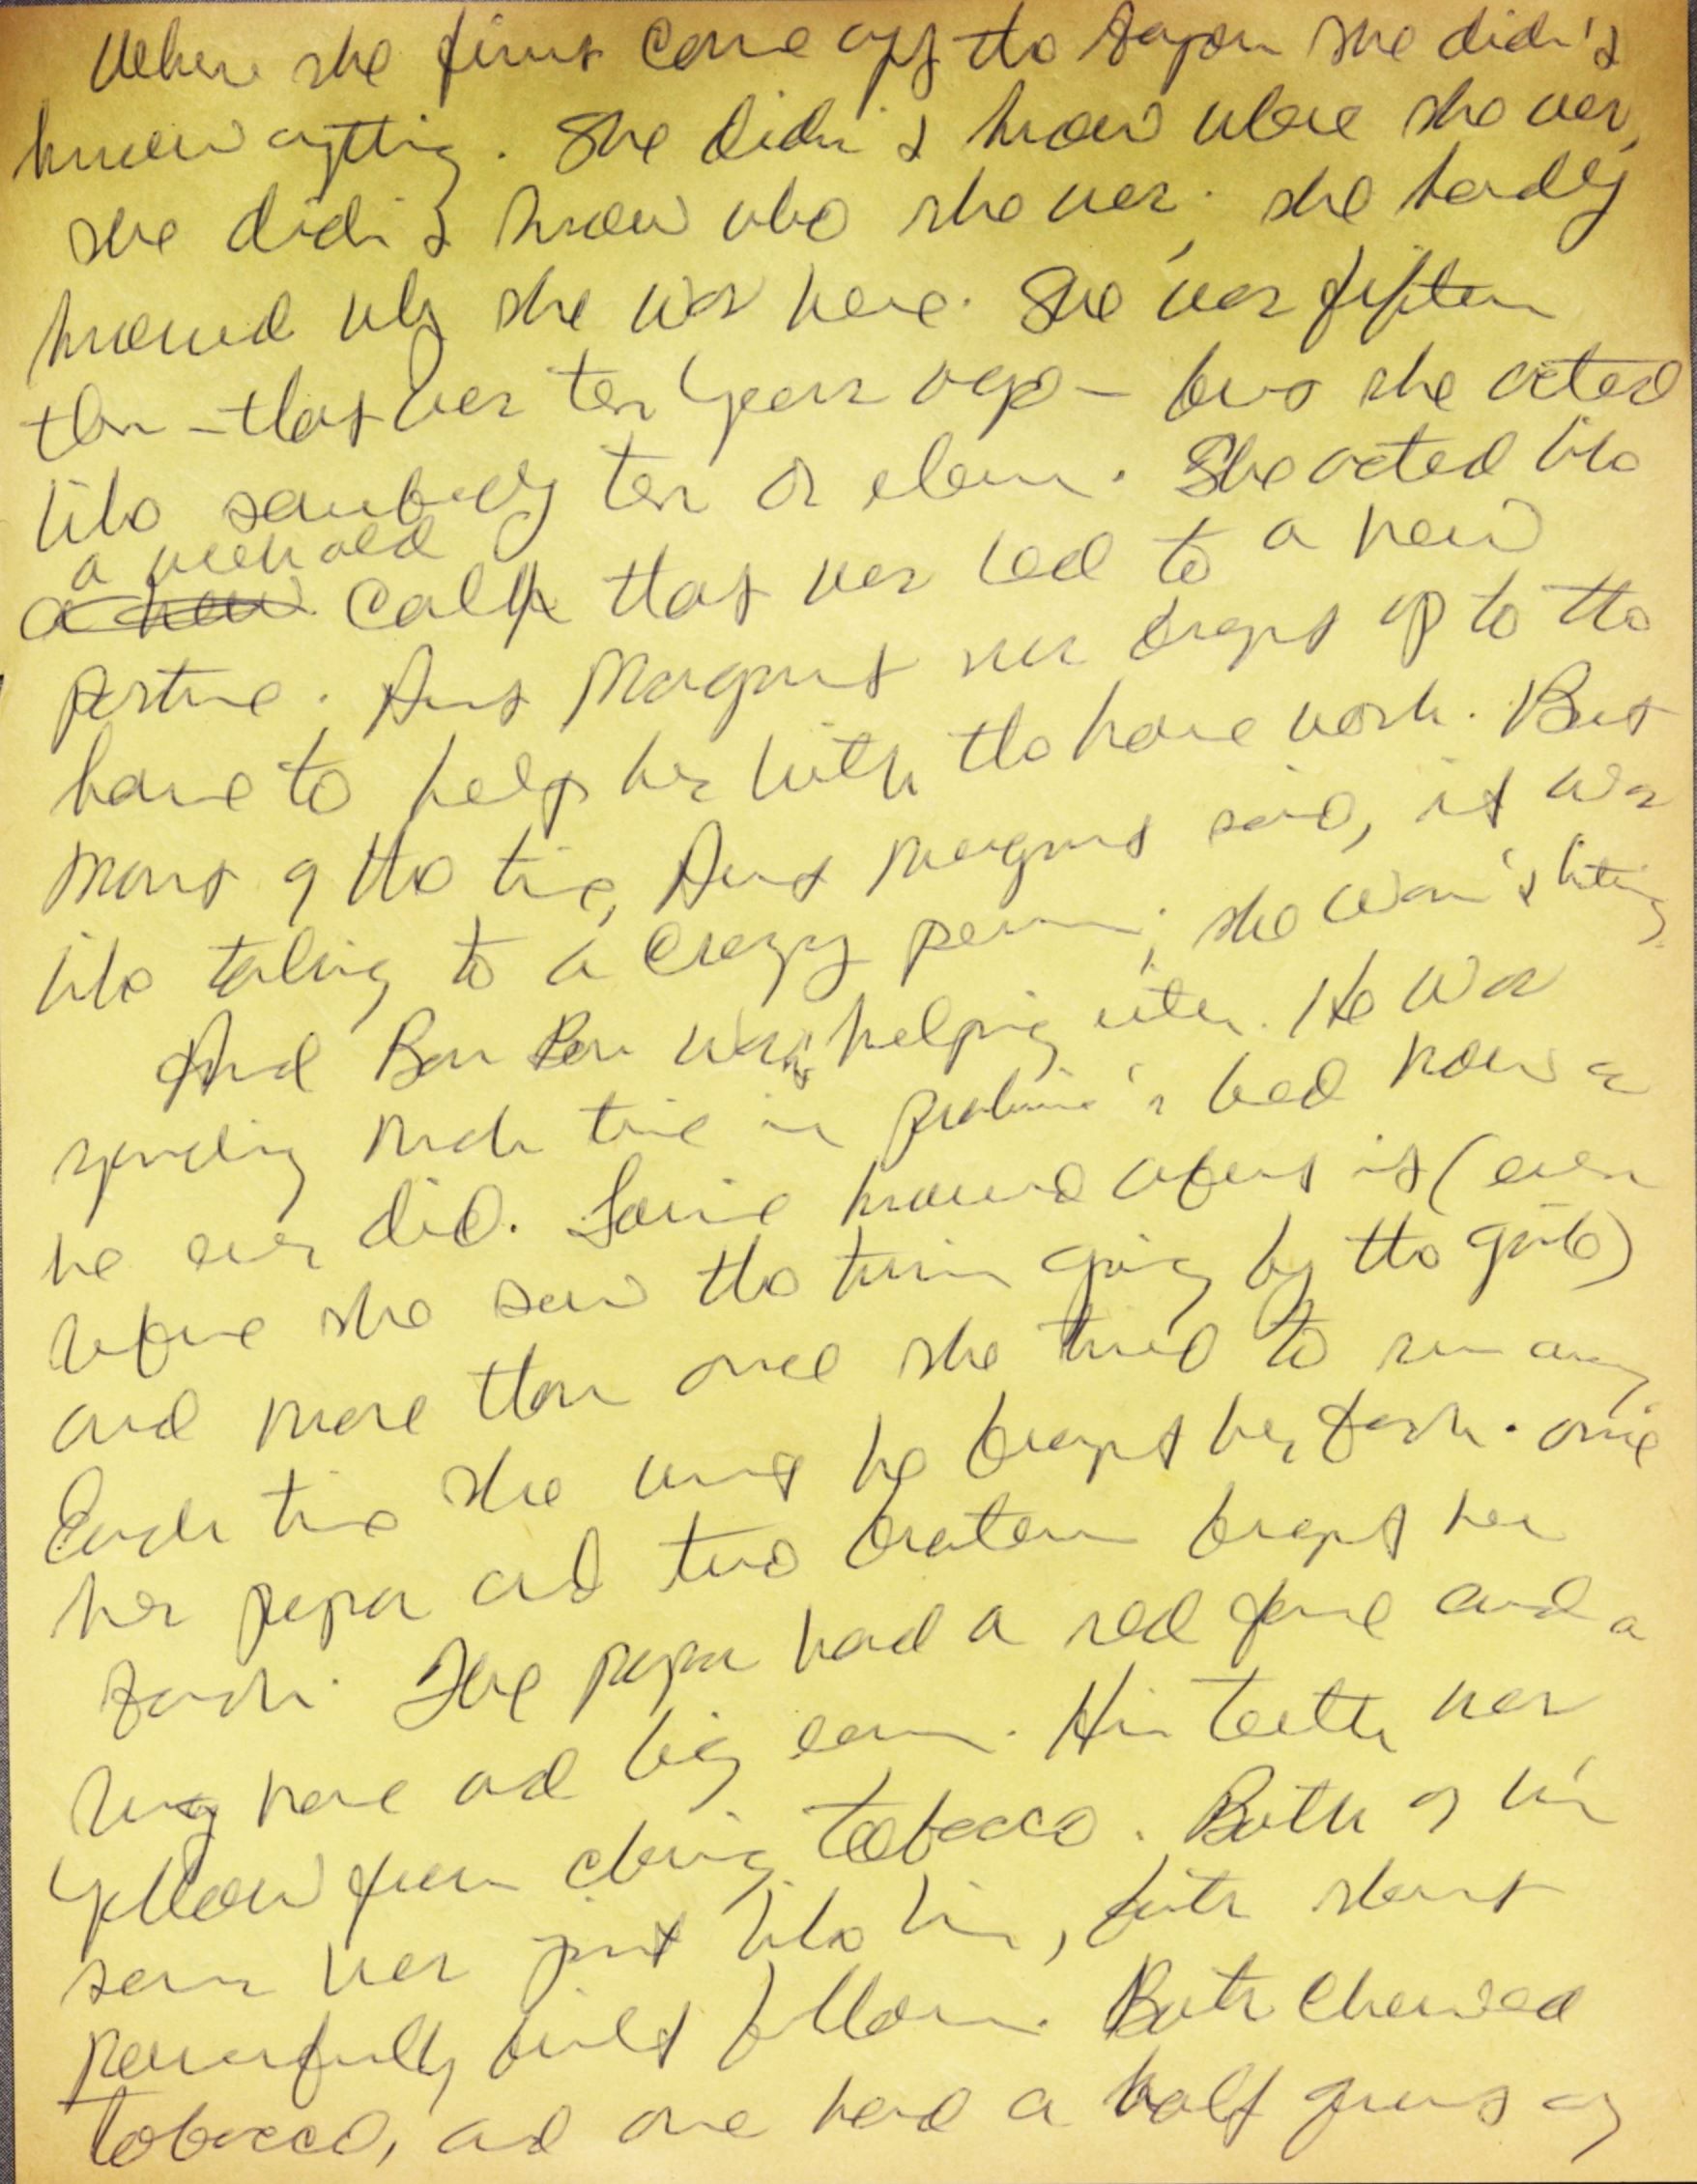 When she first come up to the bayou she didn't
know anything. She didn't know where she was,
she didn't know who she was; she hardly
knowed why she was here. She was fifteen
then – that was ten years ago – but she acted
like somebody ten or eleven. She acted like
a week old
a new calf that was led to a new
pasture. Aunt Margaret was brought up to the
house to help her with the house work. But
most of the time, Aunt Margaret said, it was
like talking to a crazy person; she wasn't listing
And Bon Bon wasn't helping either. He was
spending much time in Pauline's bed now as
he ever did. Louise knowed about it (even
before she saw the twins going by the gate)
and more than once she tried to run away
Each time she went he brought her back. Once
her papa and two brothers brought her
back. The papa had a red face and a
long nose and big ears. His teeth was
yellow from chewing tobacco. Both of his
sons was just like him, both short
powerfully built fellows. Both chewed
tobacco, and one had a half grown